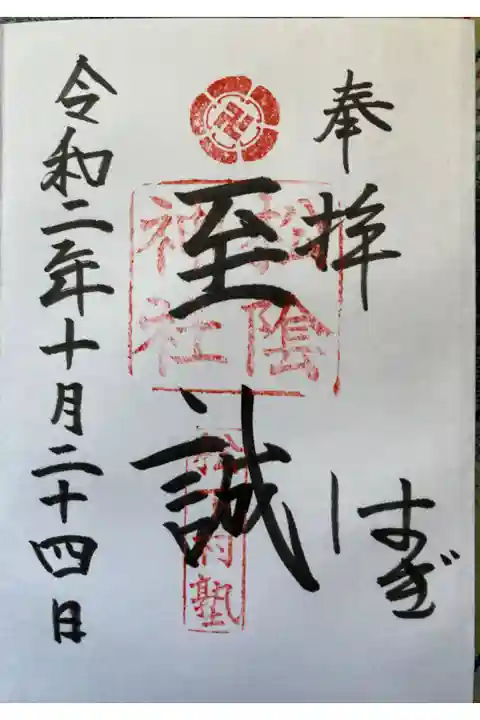 奉拝
至誠
松陰
神社
松下村塾
令和二年十月二十四日